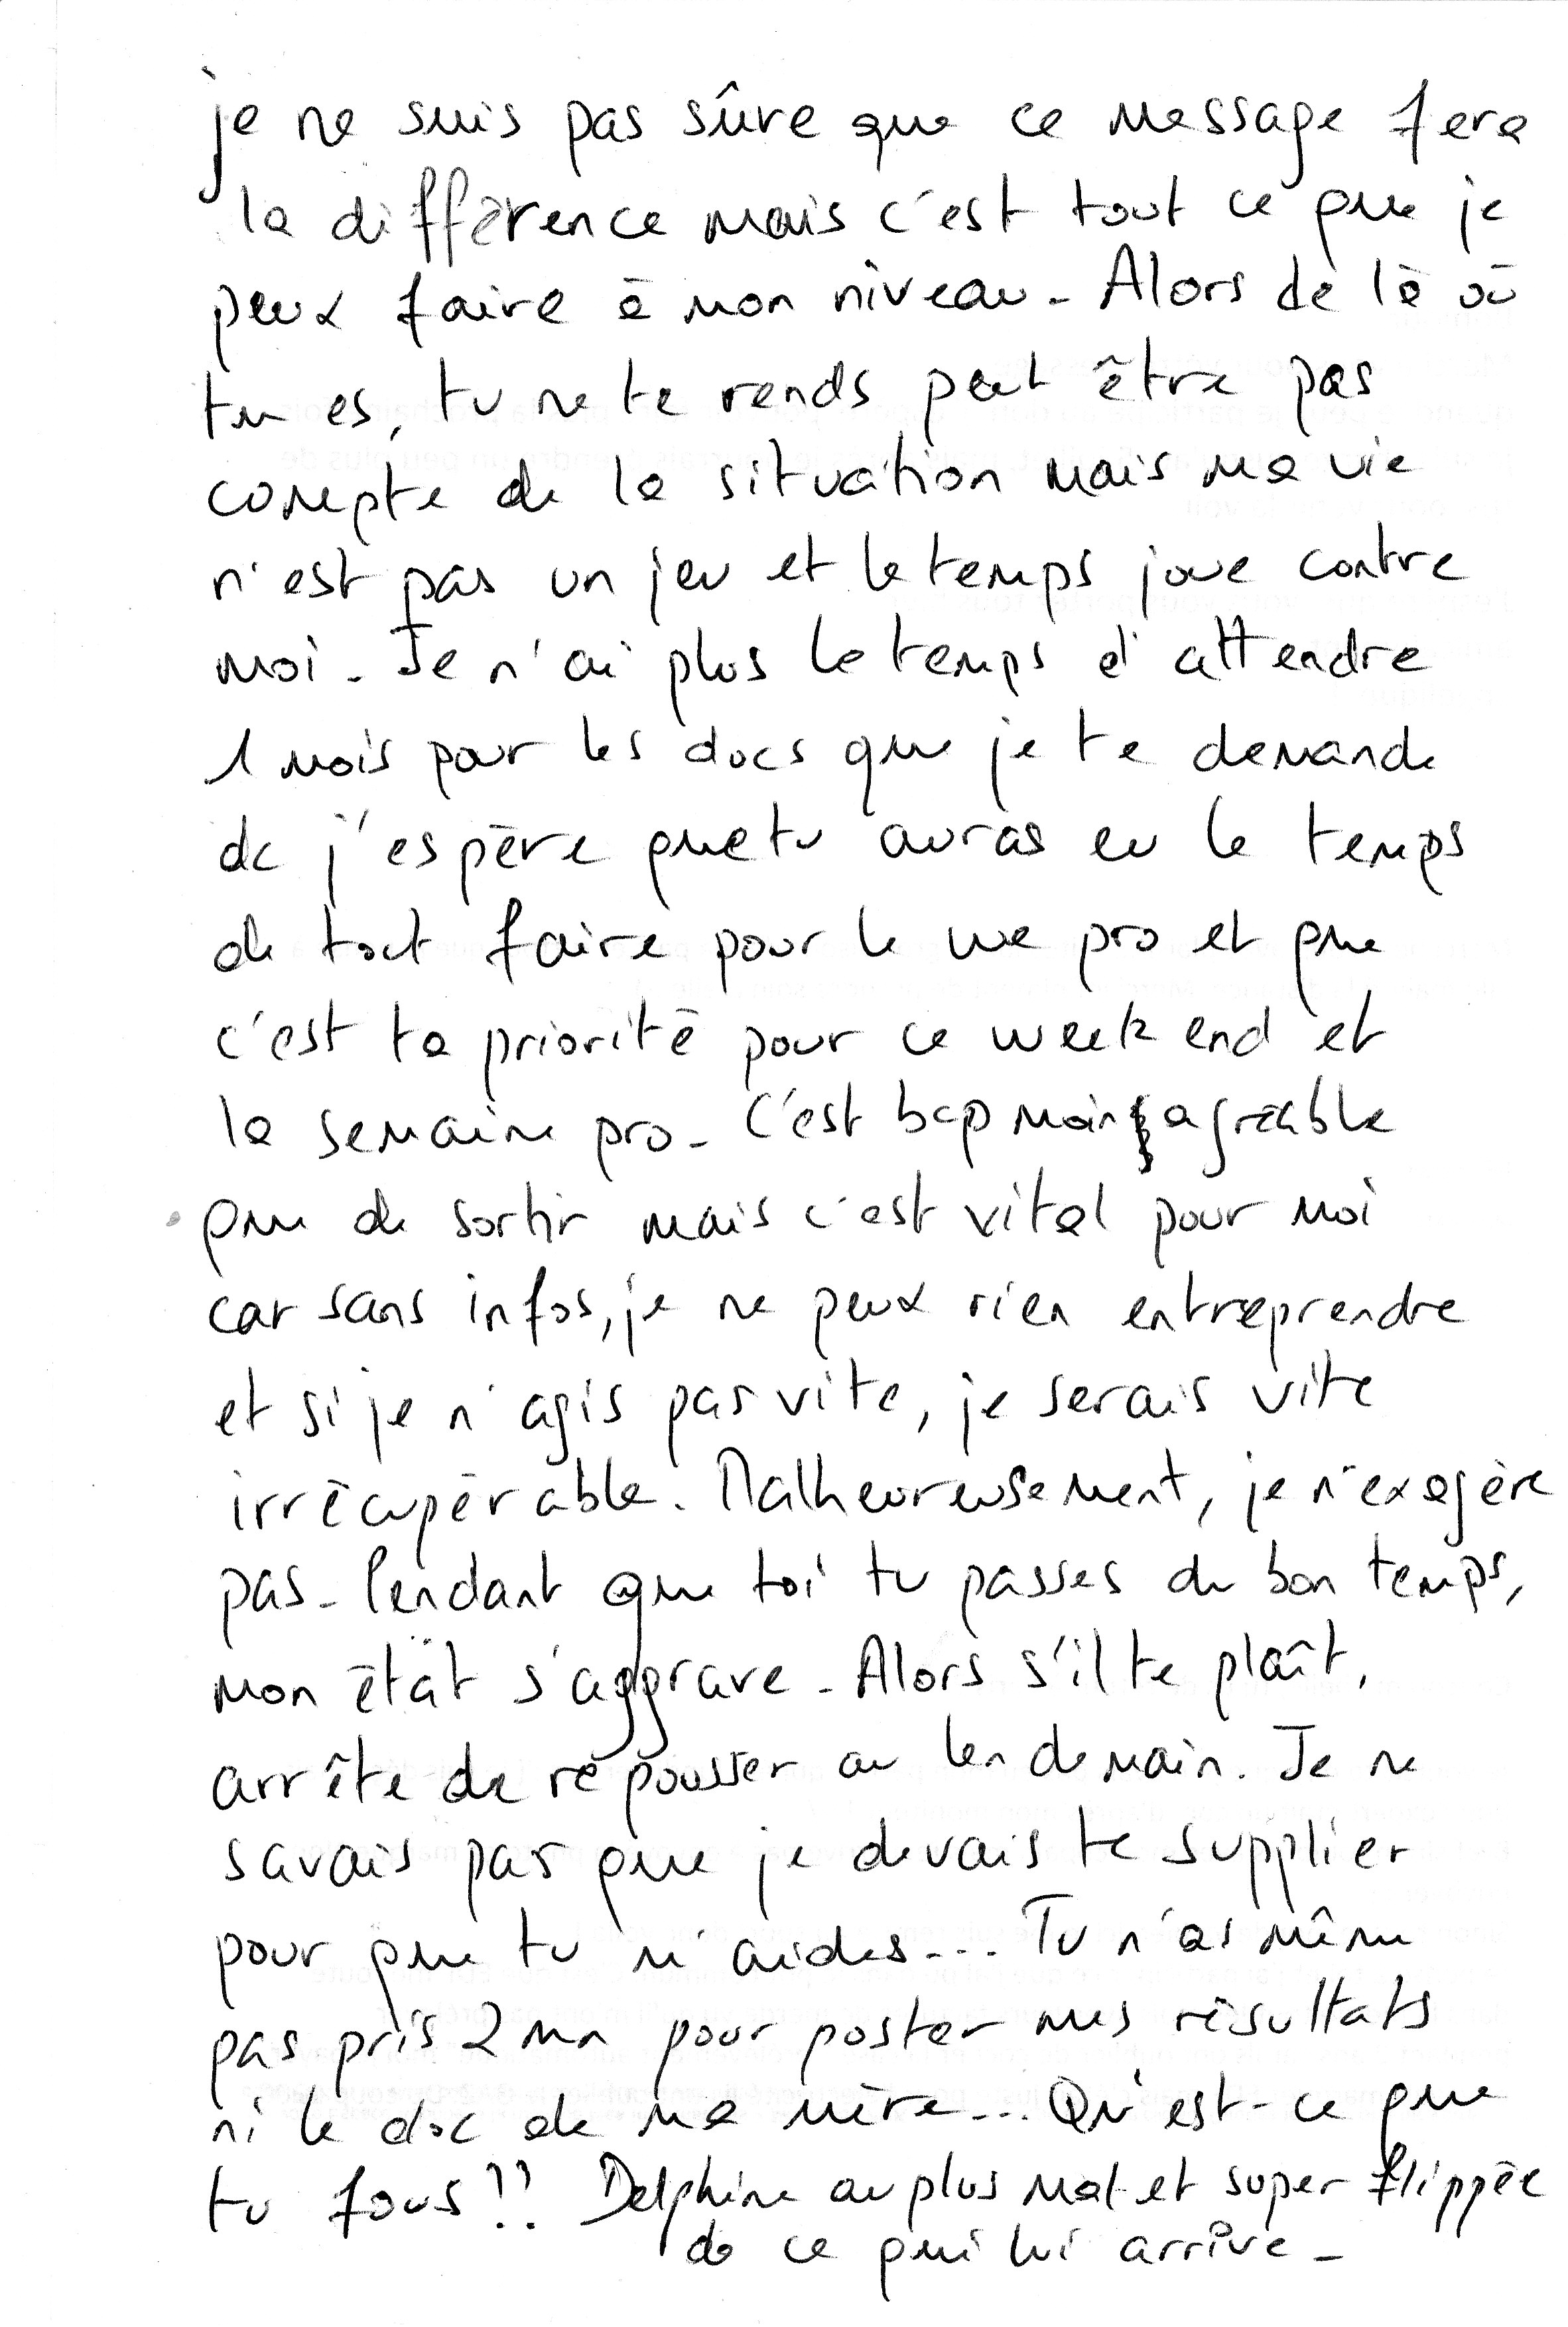 je ne suis pas sûre que ce message fera
la différence mais c'est tout ce que je
peux faire à mon niveau - Alors de là où
tu es, tu ne te rends peut être pas
compte de la situation mais ma vie
n'est pas un jeu et le temps joue contre
moi - Je n'ai plus le temps d'attendre
1 mois pour les docs que je te demande
dc j'espère que tu auras eu le temps
de tout faire pour le we pro et que
c'est ta priorité pour ce week end et
la semaine pro - C'est bcp moins agréable
que de sortir mais c'est vital pour moi
car sans infos, je ne peux rien entreprendre
et si je n'agis pas vite, je serais vite
irrécupérable. Malheureusement, je n'exagère
pas - Pendant que toi tu passes du bon temps,
mon état s'aggrave - Alors s'il te plaît,
arrête de repousser au lendemain. Je ne
savais pas que je devais te supplier
pour que tu m'aides... Tu n'as même
pas pris 2 mn pour poster mes résultats
ni le doc de ma mère... Qu'est-ce que
tu fous !! Delphine au plus mal et super flippée
de ce qui lui arrive -